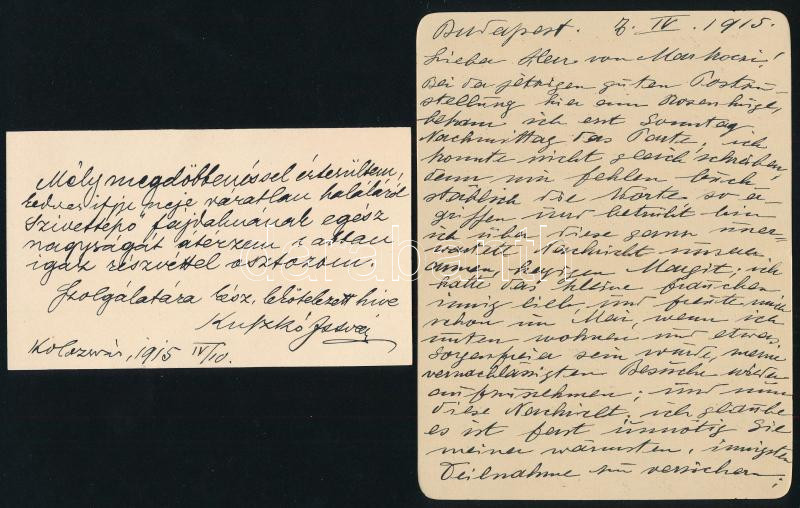 Mély megdöbbenéssel értesültem,
kedves ifju neje váratlan haláláról
Szivettépő fájdalmának egész
nagyságát átérzem s abban
igaz részvéttel osztozom.
Szolgálatára kész, lekötelezett hive
Kuszkó István
Kolozsvár, 1915 IV/10.
Budapest. 7. IV. 1915.
Lieber Herr von
Bei der jetzigen guten Postzu-
stellung hier am Rosenhügel,
bekam ich erst Sonntag
Nachmittag das Parte, ich
konnte nicht gleich schreiben,
denn mir fehlen buch-
stäblich die Worte, so er-
griffen und betrübt bin
ich über diese ganz uner-
wartete Nachricht unserer
armen Margit; ich
hatte das kleine Frauchen
innig lieb, und freute mich
schon im Mai, wenn ich
unten wohnen und etwas
sorgenfreier sein würde, meine
vernachlässigten Besuche wieder
aufzunehmen; und nun
diese Nachricht. ich glaube
es ist fast unnötig Sie
meiner wärmsten, innigsten
Teilnahme zu versichern;
darabanth